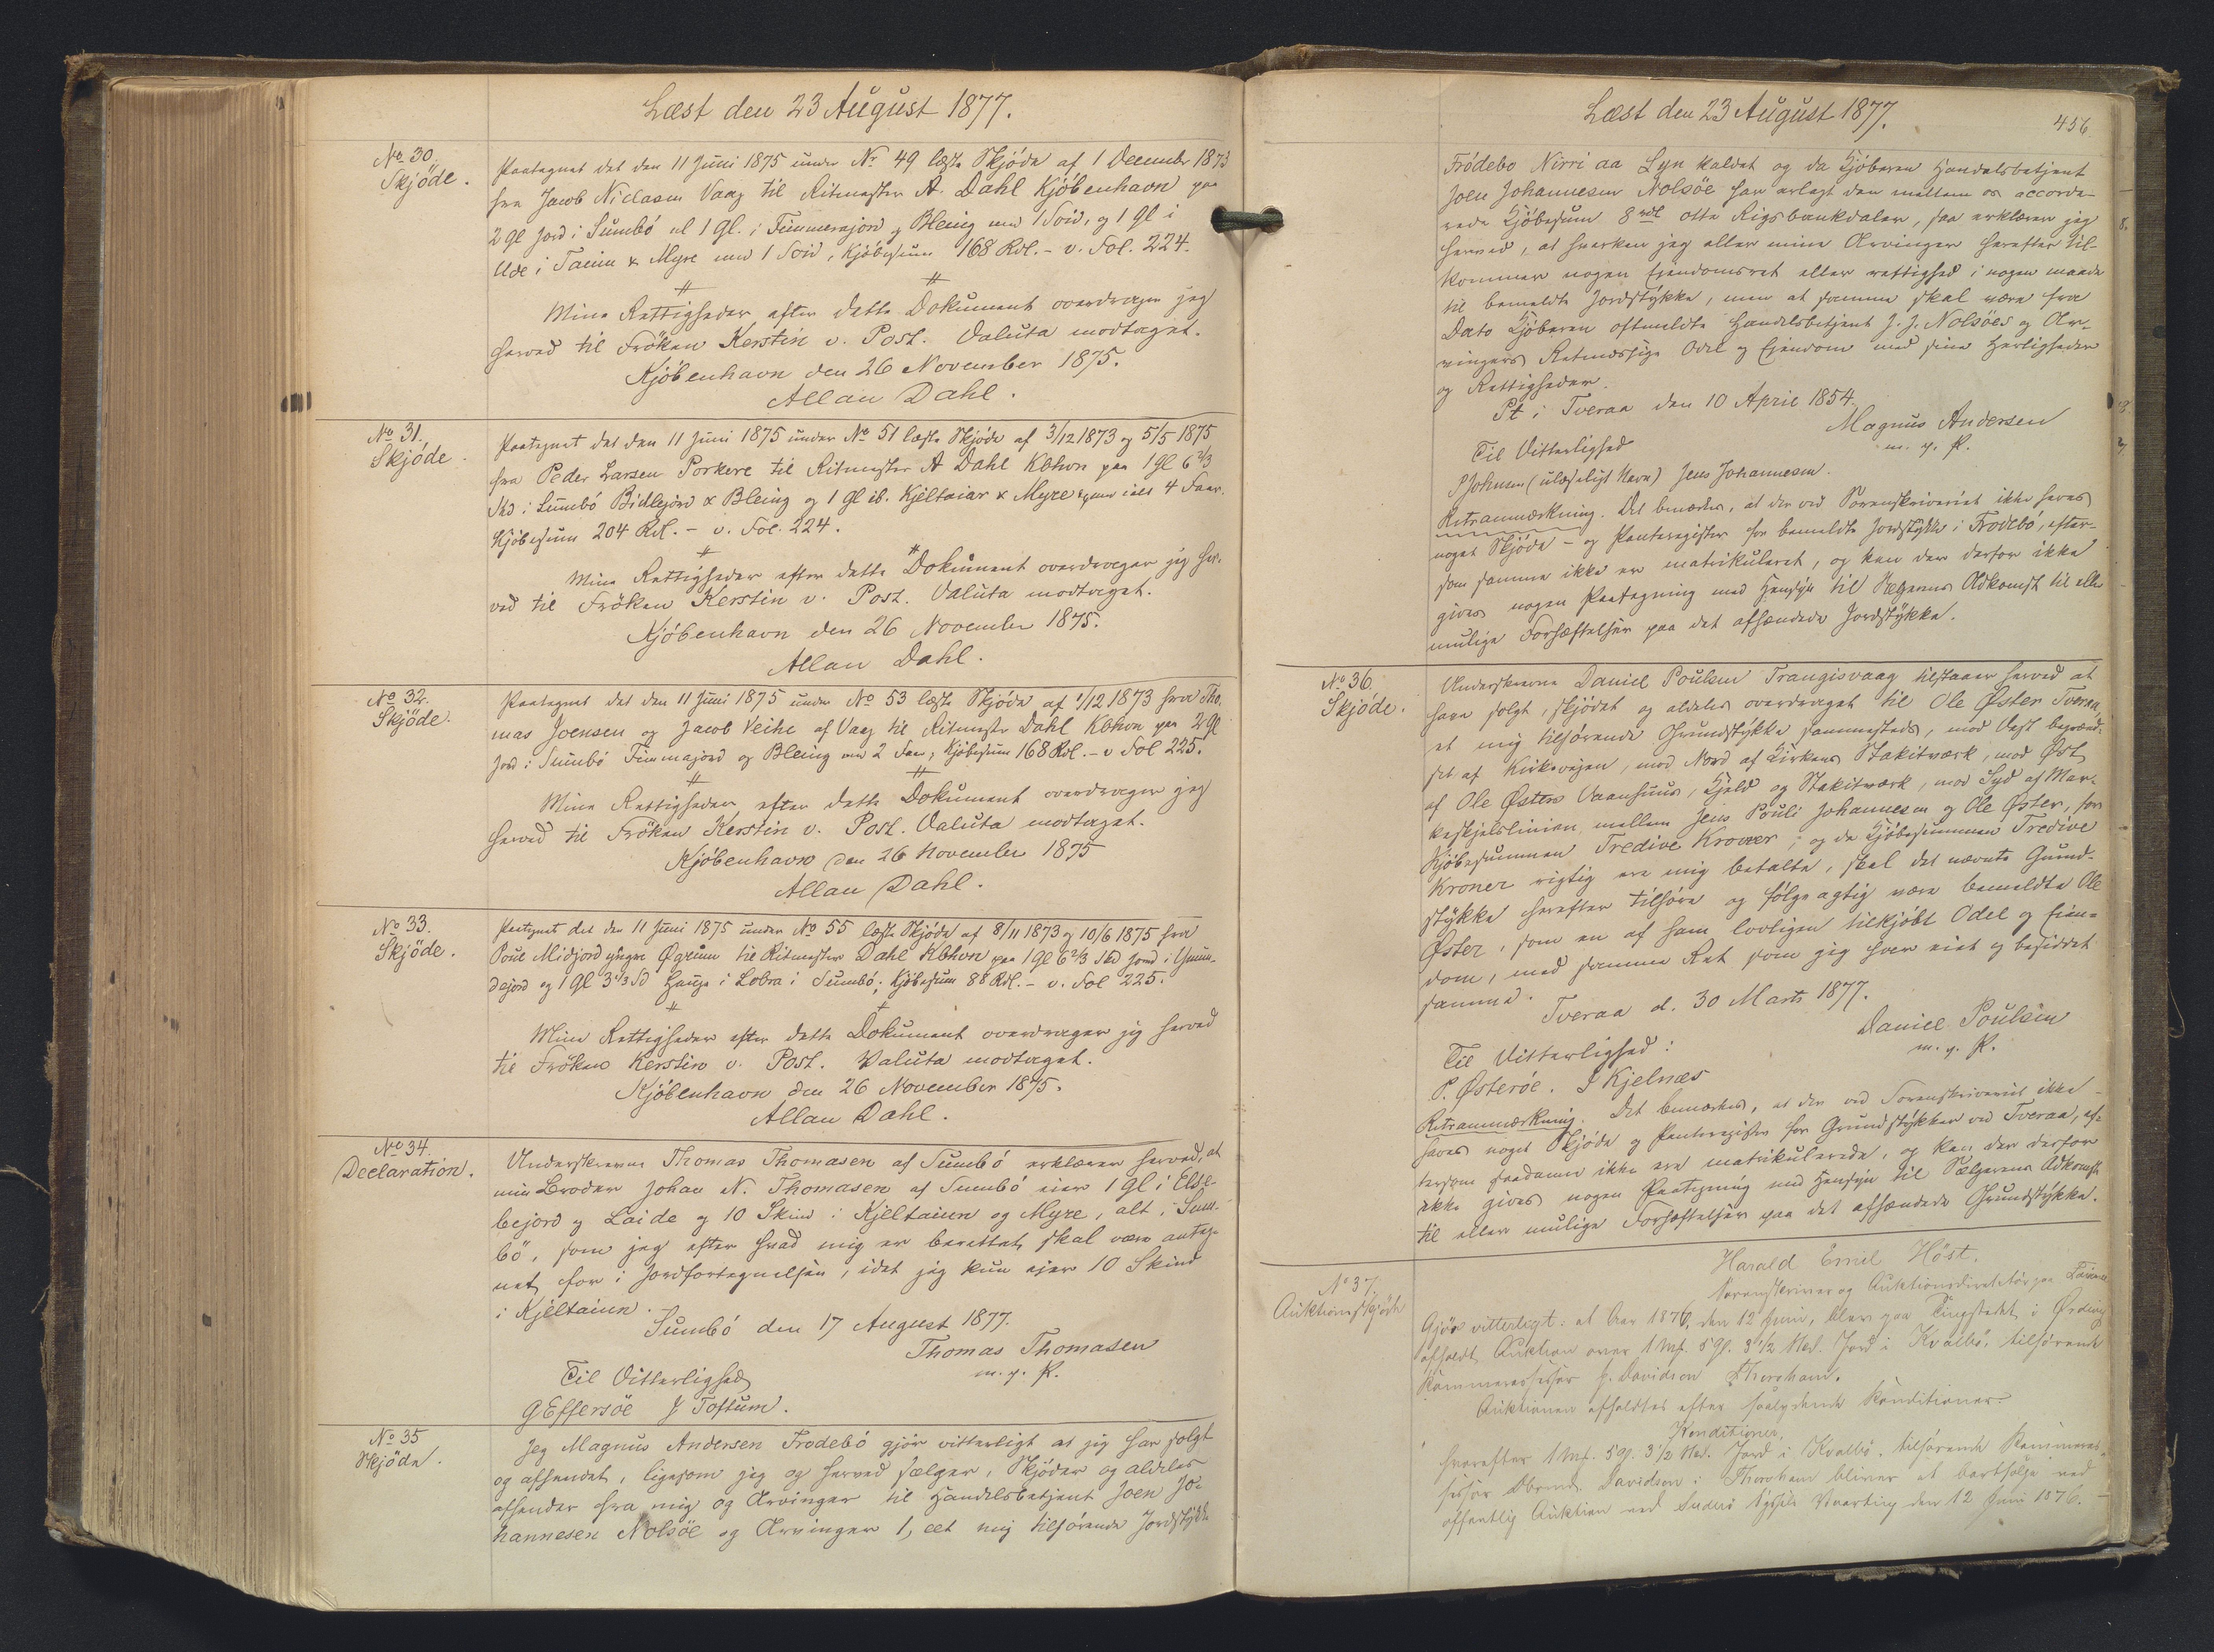 Læst den 23 August 1877.
No 30.
Skjöde.
Paategnet det den 11 Juni 1875 under Nr 49 læste Skjöde af 1 December 1873
fra Jacob Niclasen Vaag til Ritmester A. Dahl Kjöbenhavn paa
2 gl Jord i Sumbö al 1 Gl. i Timmerajord og Bleing med 1 Soid, og 1 gl i
Ude i Taiun & Myre med 1 Soid, Kjöbesum 168 Rdl. - v. Fol. 224.
Mine Rettigheder efter dette Dokument overdrager jeg
herved til Fröken Kerstin v. Post. Valuta modtaget.
Kjöbenhavn den 26 November 1875.
Allan Dahl.
No 31.
Skjöde.
Paategnet det den 11 Juni 1875 under No 51 læste Skjöde af 3/12 1873 og 5/5 1875
fra Peder Larsen Porkere til Ritmester A Dahl Kbhvn paa 1 gl 6 2/3
Skd i Sumbö Bidlejord & Bleing og 1 gl ib. Kjeltaiar & Myre med ialt 4 Faar.
Kjöbesum 204 Rdl. - v. Fol. 224.
Mine Rettigheder efter dette Dokument overdrager jeg her-
ved til Fröken Kerstin v. Post. Valuta modtaget.
Kjöbenhavn den 26 November 1875.
Allan Dahl.
No 32.
Skjöde.
Paategnet det den 11 Juni 1875 under No 53 læste Skjöde af 1/12 1873 fra Tho-
mas Joensen og Jacob Veihe af Vaag til Ritmester Dahl Kbhvn paa 2 gl
Jord i Sumbö Timmajord og Bleing med 2 Faar, Kjöbesum 168 Rdl. - v Fol 225.
Mine Rettigheder efter dette Dokument overdrager jeg
herved til Fröken Kerstin v. Post. Valuta modtaget.
Kjöbenhavn den 26 November 1875
Allan Dahl.
No 33.
Skjöde.
Paategnet det den 11 Juni 1875 under No 55 læste Skjöde af 8/11 1873 og 10/6 1875 fra
Poul Midjord yngre Øgrim til Ritmester Dahl Kbhvn paa 1 gl 6 2/3 Skd Jord i Grun-
dejord og 1 Gl 3 1/3 Sd Hauge i Lobra i Sumbö; Kjöbesum 88 Rdl. - v. Fol 225.
Mine Rettigheder efter dette Dokument overdrager jeg herved
til Fröken Kerstin v. Post. Valuta modtaget.
Kjöbenhavn den 26 November 1875.
Allan Dahl.
No 34.
Declaration.
Underskrevne Thomas Thomasen af Sumbö erklærer herved, at
min Broder Johan N. Thomasen af Sumbö eier 1 gl i Else-
bejord og Laide og 10 Skind i Kjeltaiun og Myre, alt i Sum-
bö, som jeg efter hvad mig er berettet skal være anteg-
net for i Jordfortegnelsen, idet jeg kun ejer 10 Skind
i Kjeltaiun.
Sumbö den 17 August 1877.
Thomas Thomasen
m. p. P.
Til Vitterlighed
G Effersöe J Toftum.
No 35
Skjöde.
Jeg Magnus Andersen Frodebö gjör vitterligt at jeg har solgt
og afhendet, ligesom jeg og herved sælger, Skjöder og aldeles
afhender fra mig og Arvinger til Handelsbetjent Joen Jo-
hannesen Nolsöe og Arvinger 1, eet mig tilhörende Jordstykke
Læst den 23 August 1877.
456.
Frödebo Nirri aa Lyn kaldet og da Kjöberen Handelsbetjent
Joen Johannesen Nolsöe har erlagt den mellem os accorde-
rede Kjöbesum 8 rdl otte Rigsbankdaler, saa erklærer jeg
herved, at hverken jeg eller mine Arvinger herefter til-
kommer nogen Eiendomsret eller rettighed i nogen maade
til bemeldte Jordstykke, men at samme skal være fra
Dato Kjöberen oftmeldte Handelsbetjent J. J. Nolsöes og Ar-
vingers Retmæssige Odel og Eiendom med sine Herligheder
og Rettigheder.
Pt i Tveraa den 10 April 1854.
Magnus Andersen
m. p. P.
Til Vitterlighed
P Johnsen (ulæseligt Navn) Jens Johannesen.
Retsanmærkning. Det bemærkes, at der ved Sorenskriveriet ikke haves
noget Skjöde- og Panteregister for bemeldte Jordstykke i Frodebö, efter-
som samme ikke er matrikuleret, og kan der derfor ikke
gives nogen Paategning med Hensyn til Sælgerens Adkomst til eller
mulige Forhæftelser paa det afhændede Jordstykke.
No 36.
Skjöde.
Underskrevne Daniel Poulsen Trangisvaag tilstaaer herved at
have solgt, skjödet og aldeles overdraget til Ole Øster Tveraa,
et mig tilhörende Grundstykke sammesteds, mod Vest begrænd-
set af Kirkevejen, mod Nord af Kirkens Stakitværk, mod Øst
af Ole Østers Vaanhuus, Kjeld og Stakitværk, mod Syd af Mar-
keskjelslinien mellem Jens Pouli Johannesen og Ole Øster, for
Kjöbesummen Tredive Kroner; og da Kjöbesummen Tredive
Kroner rigtig ere mig betalte, skal det nævnte Grund-
stykke herefter tilhöre og fölgeagtig være bemeldte Ole
Øster, som en af ham lovligen tilkjöbt Odel og Eien-
dom, med samme Ret som jeg har eiet og besiddet
samme.
Tveraa d. 30 Marts 1877.
Daniel Poulsen
m. p. P.
Til Vitterlighed:
P. Østeröe. J Kjelnæs
Retsanmærkning. Det bemærkes, at der ved Sorenskriveriet ikke
haves noget Skjöde og Panteregister for Grundstykker ved Tveraa, ef-
tersom saadanne ikke ere matrikulerede, og kan der derfor
ikke gives nogen Paategning med Hensyn til Sælgerens Adkomst
til eller mulige Forhæftelser paa det afhændede Grundstykke.
No 37.
Auktionsskjöde
Harald Emil Höst.
Sorenskriver og Auktionsdirektör paa Færöerne
Gjör vitterligt: at Aar 1876, den 12 Juni, blev paa Tingstedet i Ördevig
afholdt Auktion over 1 Mk. 5 gl. 3 1/2 Skd. Jord i Kvalbö, tilhörende
Kammerassessor J. Davidson Thorshavn.
Auktionen afholdtes efter saalydende Konditioner.
Konditioner,
hvorefter 1 Mk. 5 gl. 3 1/2 Skd. Jord i Kvalbö, tilhörende Kammeras-
sessor Davidson i Thorshavn bliver at bortsælge ved
offentlig Auktion ved Suderö Syssels Vaarting den 12 Juni 1876.